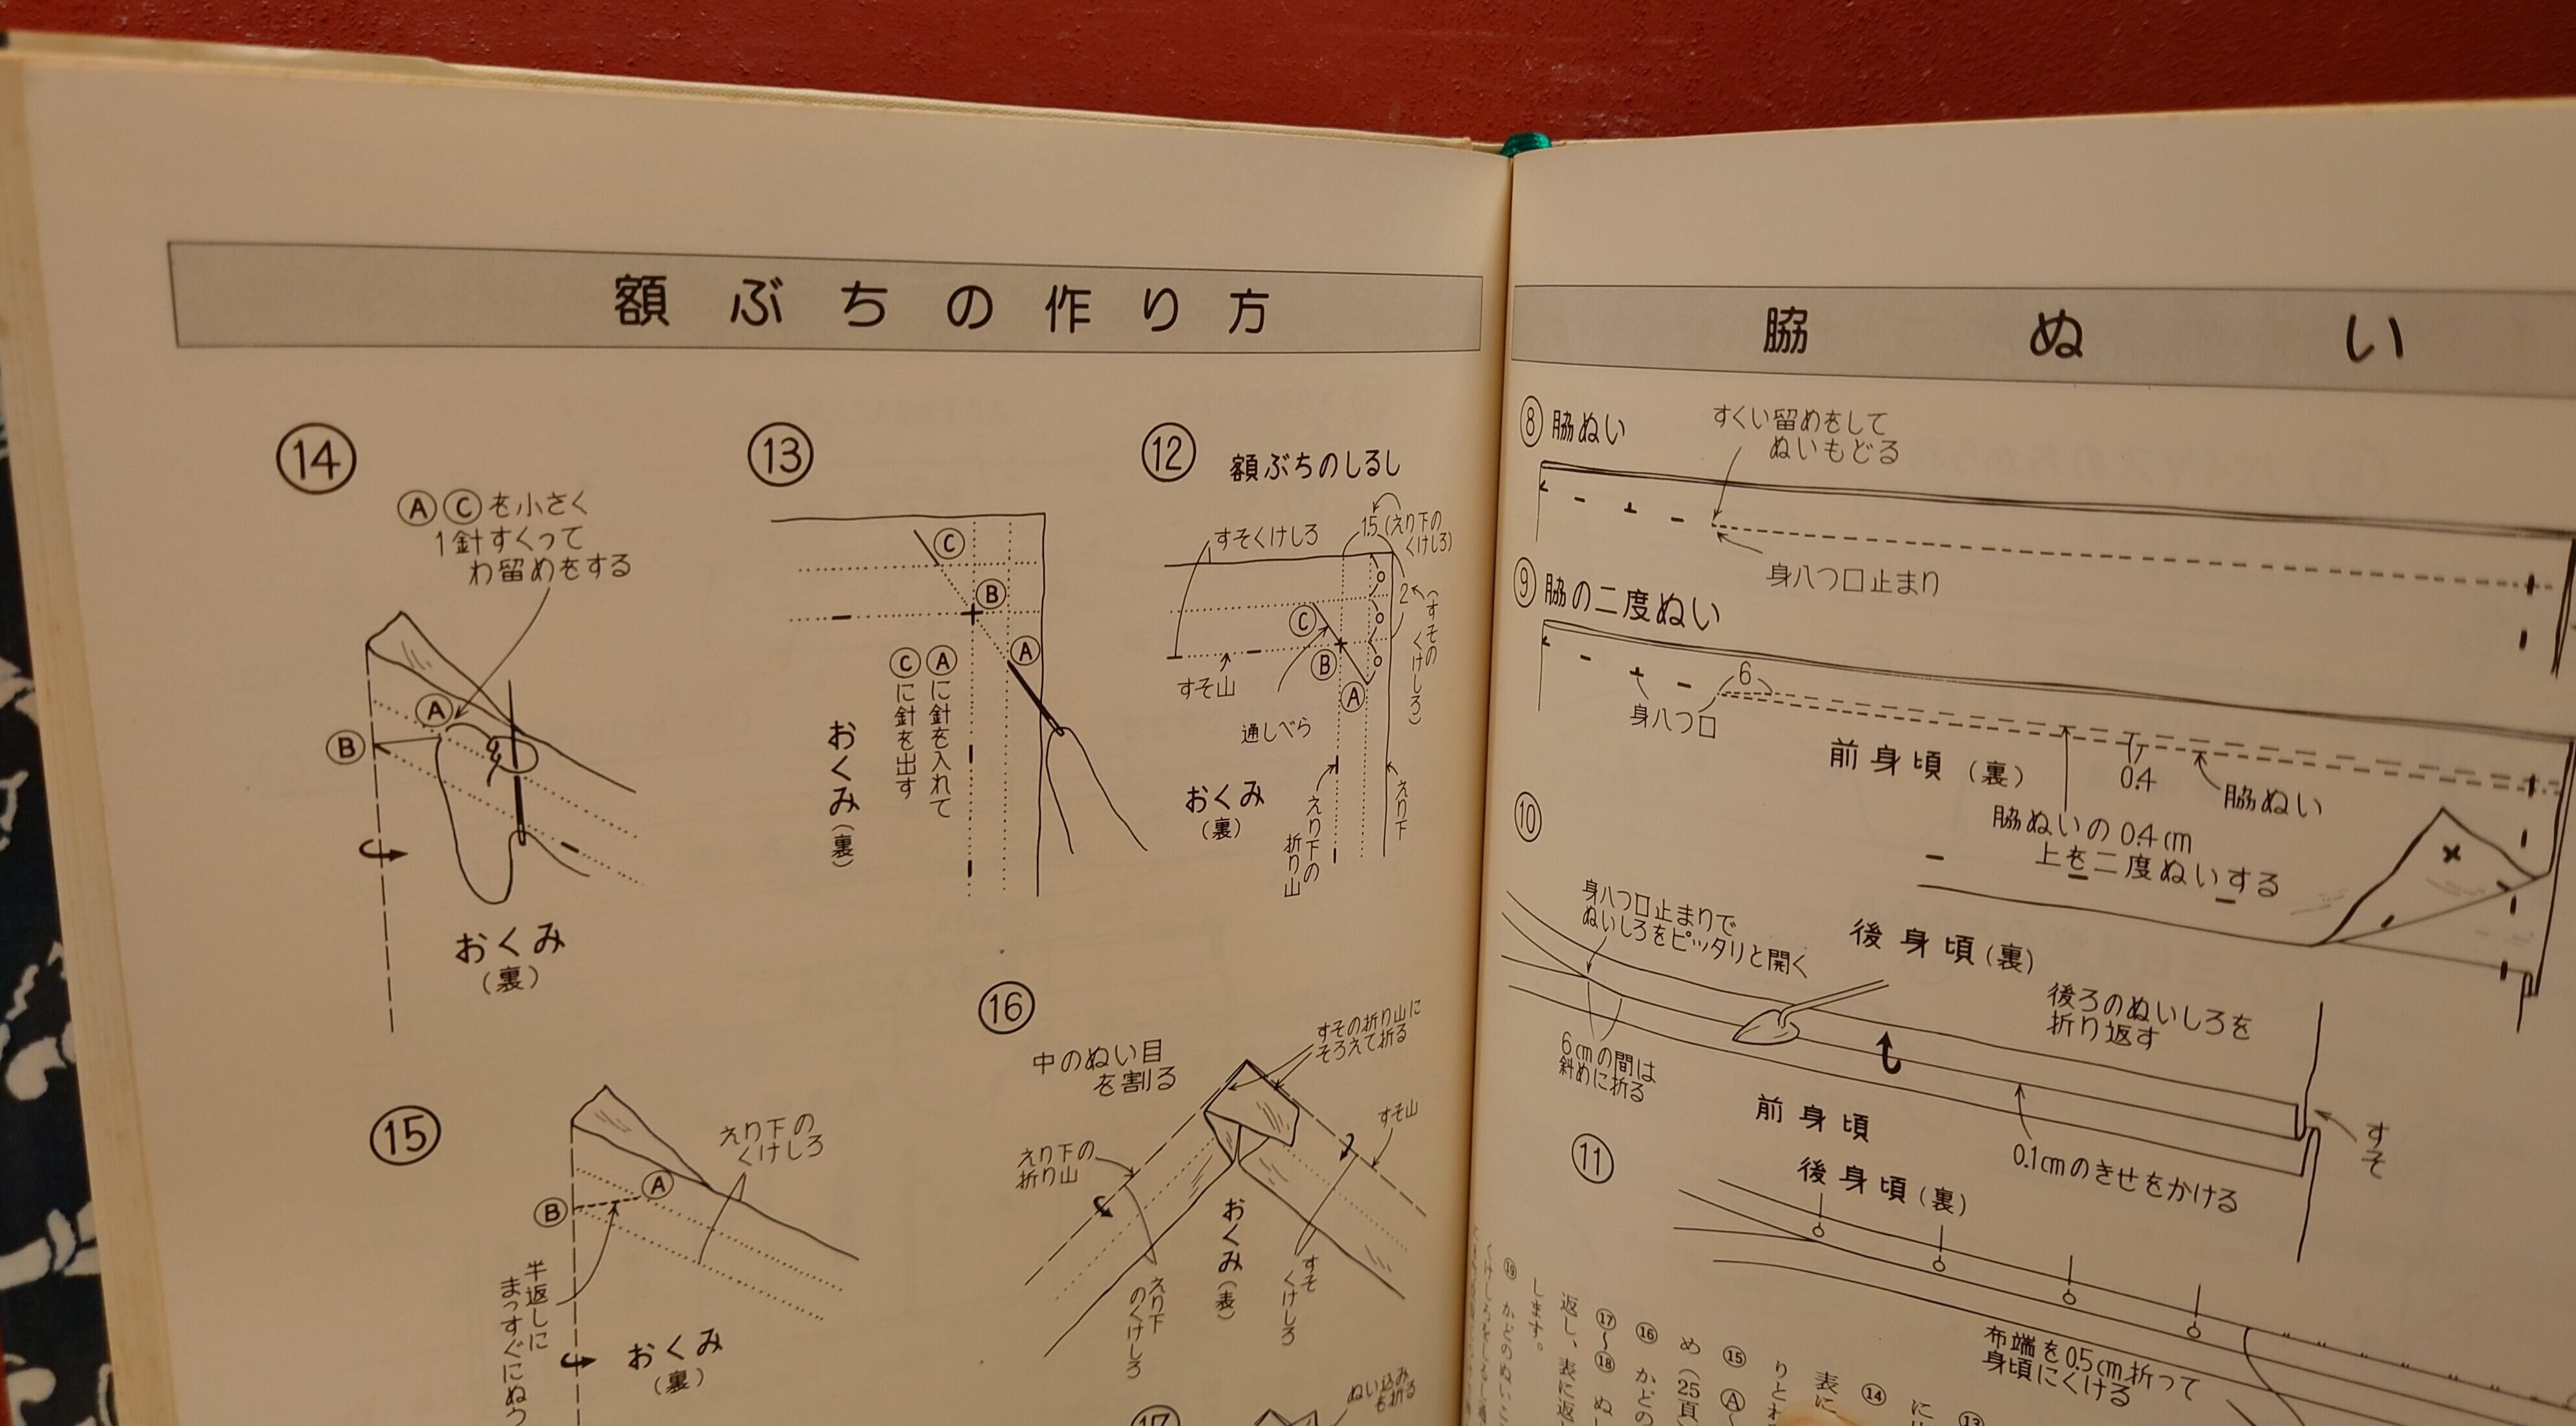 脇ぬい
⑧ 脇ぬい
すくい留めをして
ぬいもどる
身八つ口止まり
⑨ 脇の二度ぬい
6
身八つ口
前身頃（裏）
0.4
脇ぬい
脇ぬいの0.4cm
上を二度ぬいする
後身頃（裏）
⑩
身八つ口止まりで
ぬいしろをピッタリと開く
後ろのぬいしろを
折り返す
6cmの間は
斜めに折る
前身頃
すそ
0.1cmのきせをかける
⑪
後身頃（裏）
布端を0.5cm折って
身頃にくける
⑬
⑭
表に
⑮ Ⓐ
め（25頁
⑯ かどの
⑰〜⑱ ぬ
返し、表に返
します。
⑲ かどのぬいこ
額ぶちの作り方
⑫ 額ぶちのしるし
すそくけしろ
1.5（えり下の
くけしろ）
2
（すその
くけしろ）
Ⓒ
Ⓑ
Ⓐ
すそ山
通しべら
おくみ
（裏）
えり下の
折り山
えり下
⑬
Ⓒ
Ⓑ
Ⓐ
Ⓐに針を入れて
Ⓒに針を出す
おくみ（裏）
⑭
ⒶⒸを小さく
1針すくって
わ留めをする
Ⓐ
Ⓑ
おくみ
（裏）
⑮
えり下の
くけしろ
Ⓐ
Ⓑ
半返しに
まっすぐにぬう
おくみ
（裏）
⑯
中のぬい目
を割る
すその折り山に
そろえて折る
すそ山
えり下の
折り山
おくみ（表）
えり下
のくけしろ
すそ
くけしろ
⑰
ぬい込み
も折る